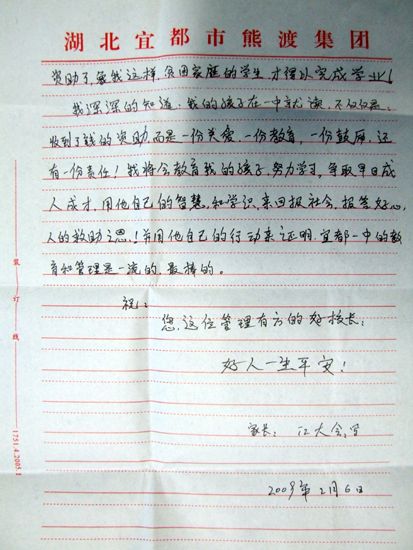 湖北宜都市熊渡集团
资助了象我这样贫困家庭的学生才得以完成学业！
我深深的知道，我的孩子在一中就读，不仅仅是
收到了钱的资助，而是一份关爱，一份教育，一份鼓励，还
有一份责任！我将会教育我的孩子，努力学习，争取早日成
人成才，用他自己的智慧，和学识，来回报社会，报答好心
人的救助之恩！并用他自己的行动来证明，宜都一中的教
育和管理是一流的，最棒的。
祝：
您，这位管理有方的好校长：
好人一生平安！
家长：江大会 字
2009年2月6日
装
订
线
1751.4.2005.1